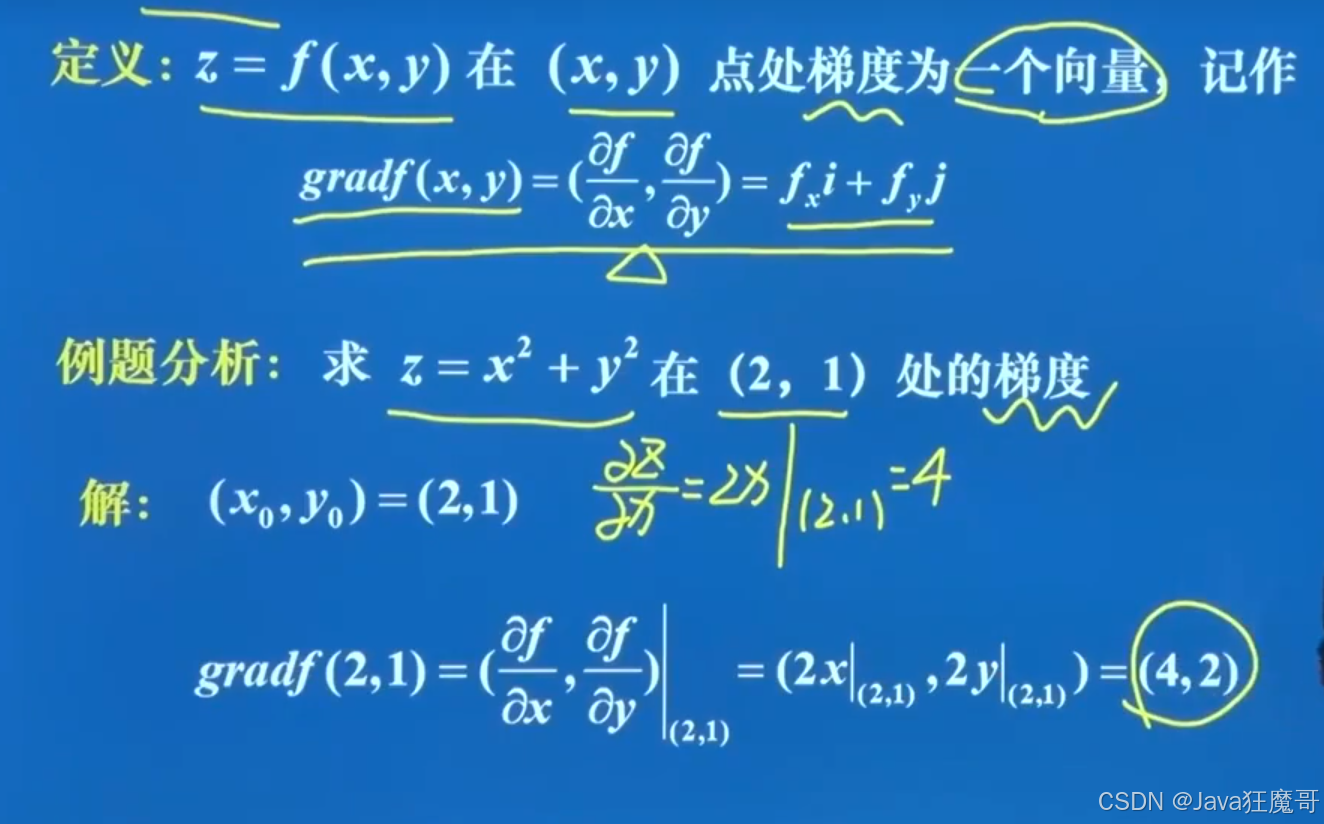 定义：z = f(x, y) 在 (x, y) 点处梯度为一个向量，记作
gradf(x, y) = (∂f/∂x, ∂f/∂y) = fₓi + f_y j
例题分析： 求 z = x² + y² 在 (2, 1) 处的梯度
解： (x₀, y₀) = (2,1) ∂z/∂x = 2x|(2,1) = 4
gradf(2,1) = (∂f/∂x, ∂f/∂y)|(2,1) = (2x|(2,1), 2y|(2,1)) = (4,2)
CSDN @Java狂魔哥